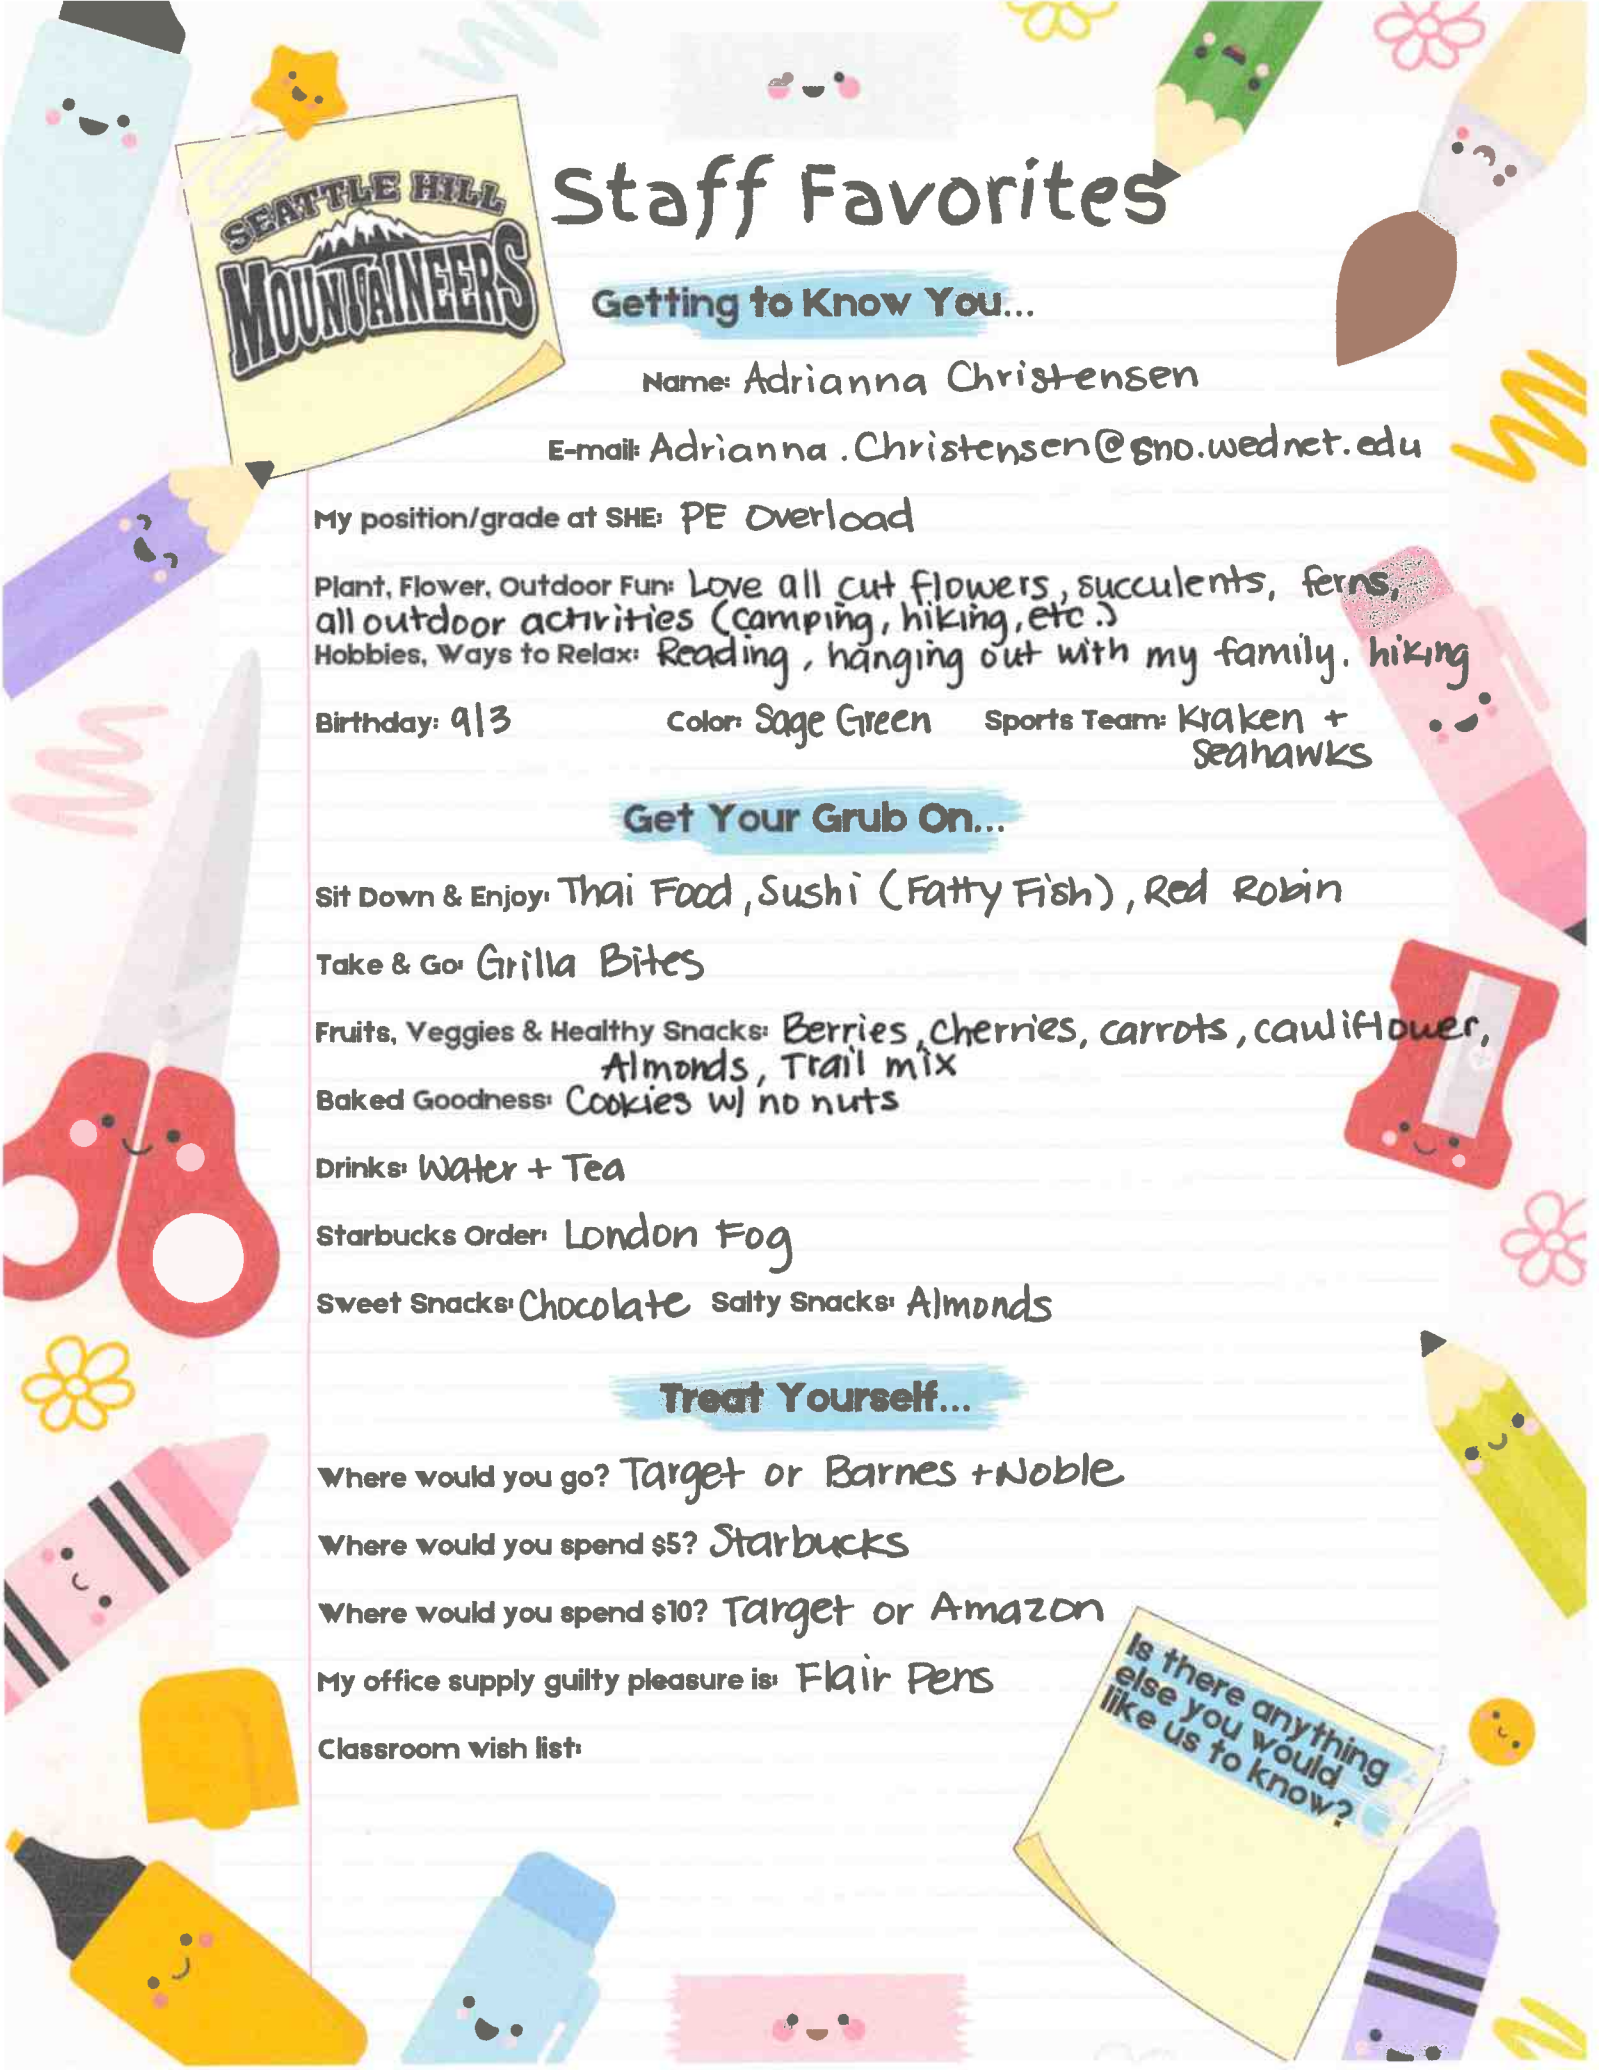 SEATTLE HILL
MOUNTAINEERS
Staff Favorites
Getting to Know You...
Name: Adrianna Christensen
E-mail: Adrianna.Christensen@sno.wednet.edu
My position/grade at SHE: PE Overload
Plant, Flower, Outdoor Fun: Love all cut flowers, succulents, ferns,
all outdoor activities (camping, hiking, etc.)
Hobbies, Ways to Relax: Reading, hanging out with my family. hiking
Birthday: 9/3 Color: Sage Green Sports Team: Kraken +
Seahawks
Get Your Grub On...
Sit Down & Enjoy: Thai Food, Sushi (Fatty Fish), Red Robin
Take & Go: Grilla Bites
Fruits, Veggies & Healthy Snacks: Berries, cherries, carrots, cauliflower,
Almonds, Trail mix
Baked Goodness: Cookies w/ no nuts
Drinks: Water + Tea
Starbucks Order: London Fog
Sweet Snacks: Chocolate Salty Snacks: Almonds
Treat Yourself...
Where would you go? Target or Barnes + Noble
Where would you spend $5? Starbucks
Where would you spend $10? Target or Amazon
My office supply guilty pleasure is: Flair Pens
Classroom wish list:
Is there anything
else you would
like us to know?